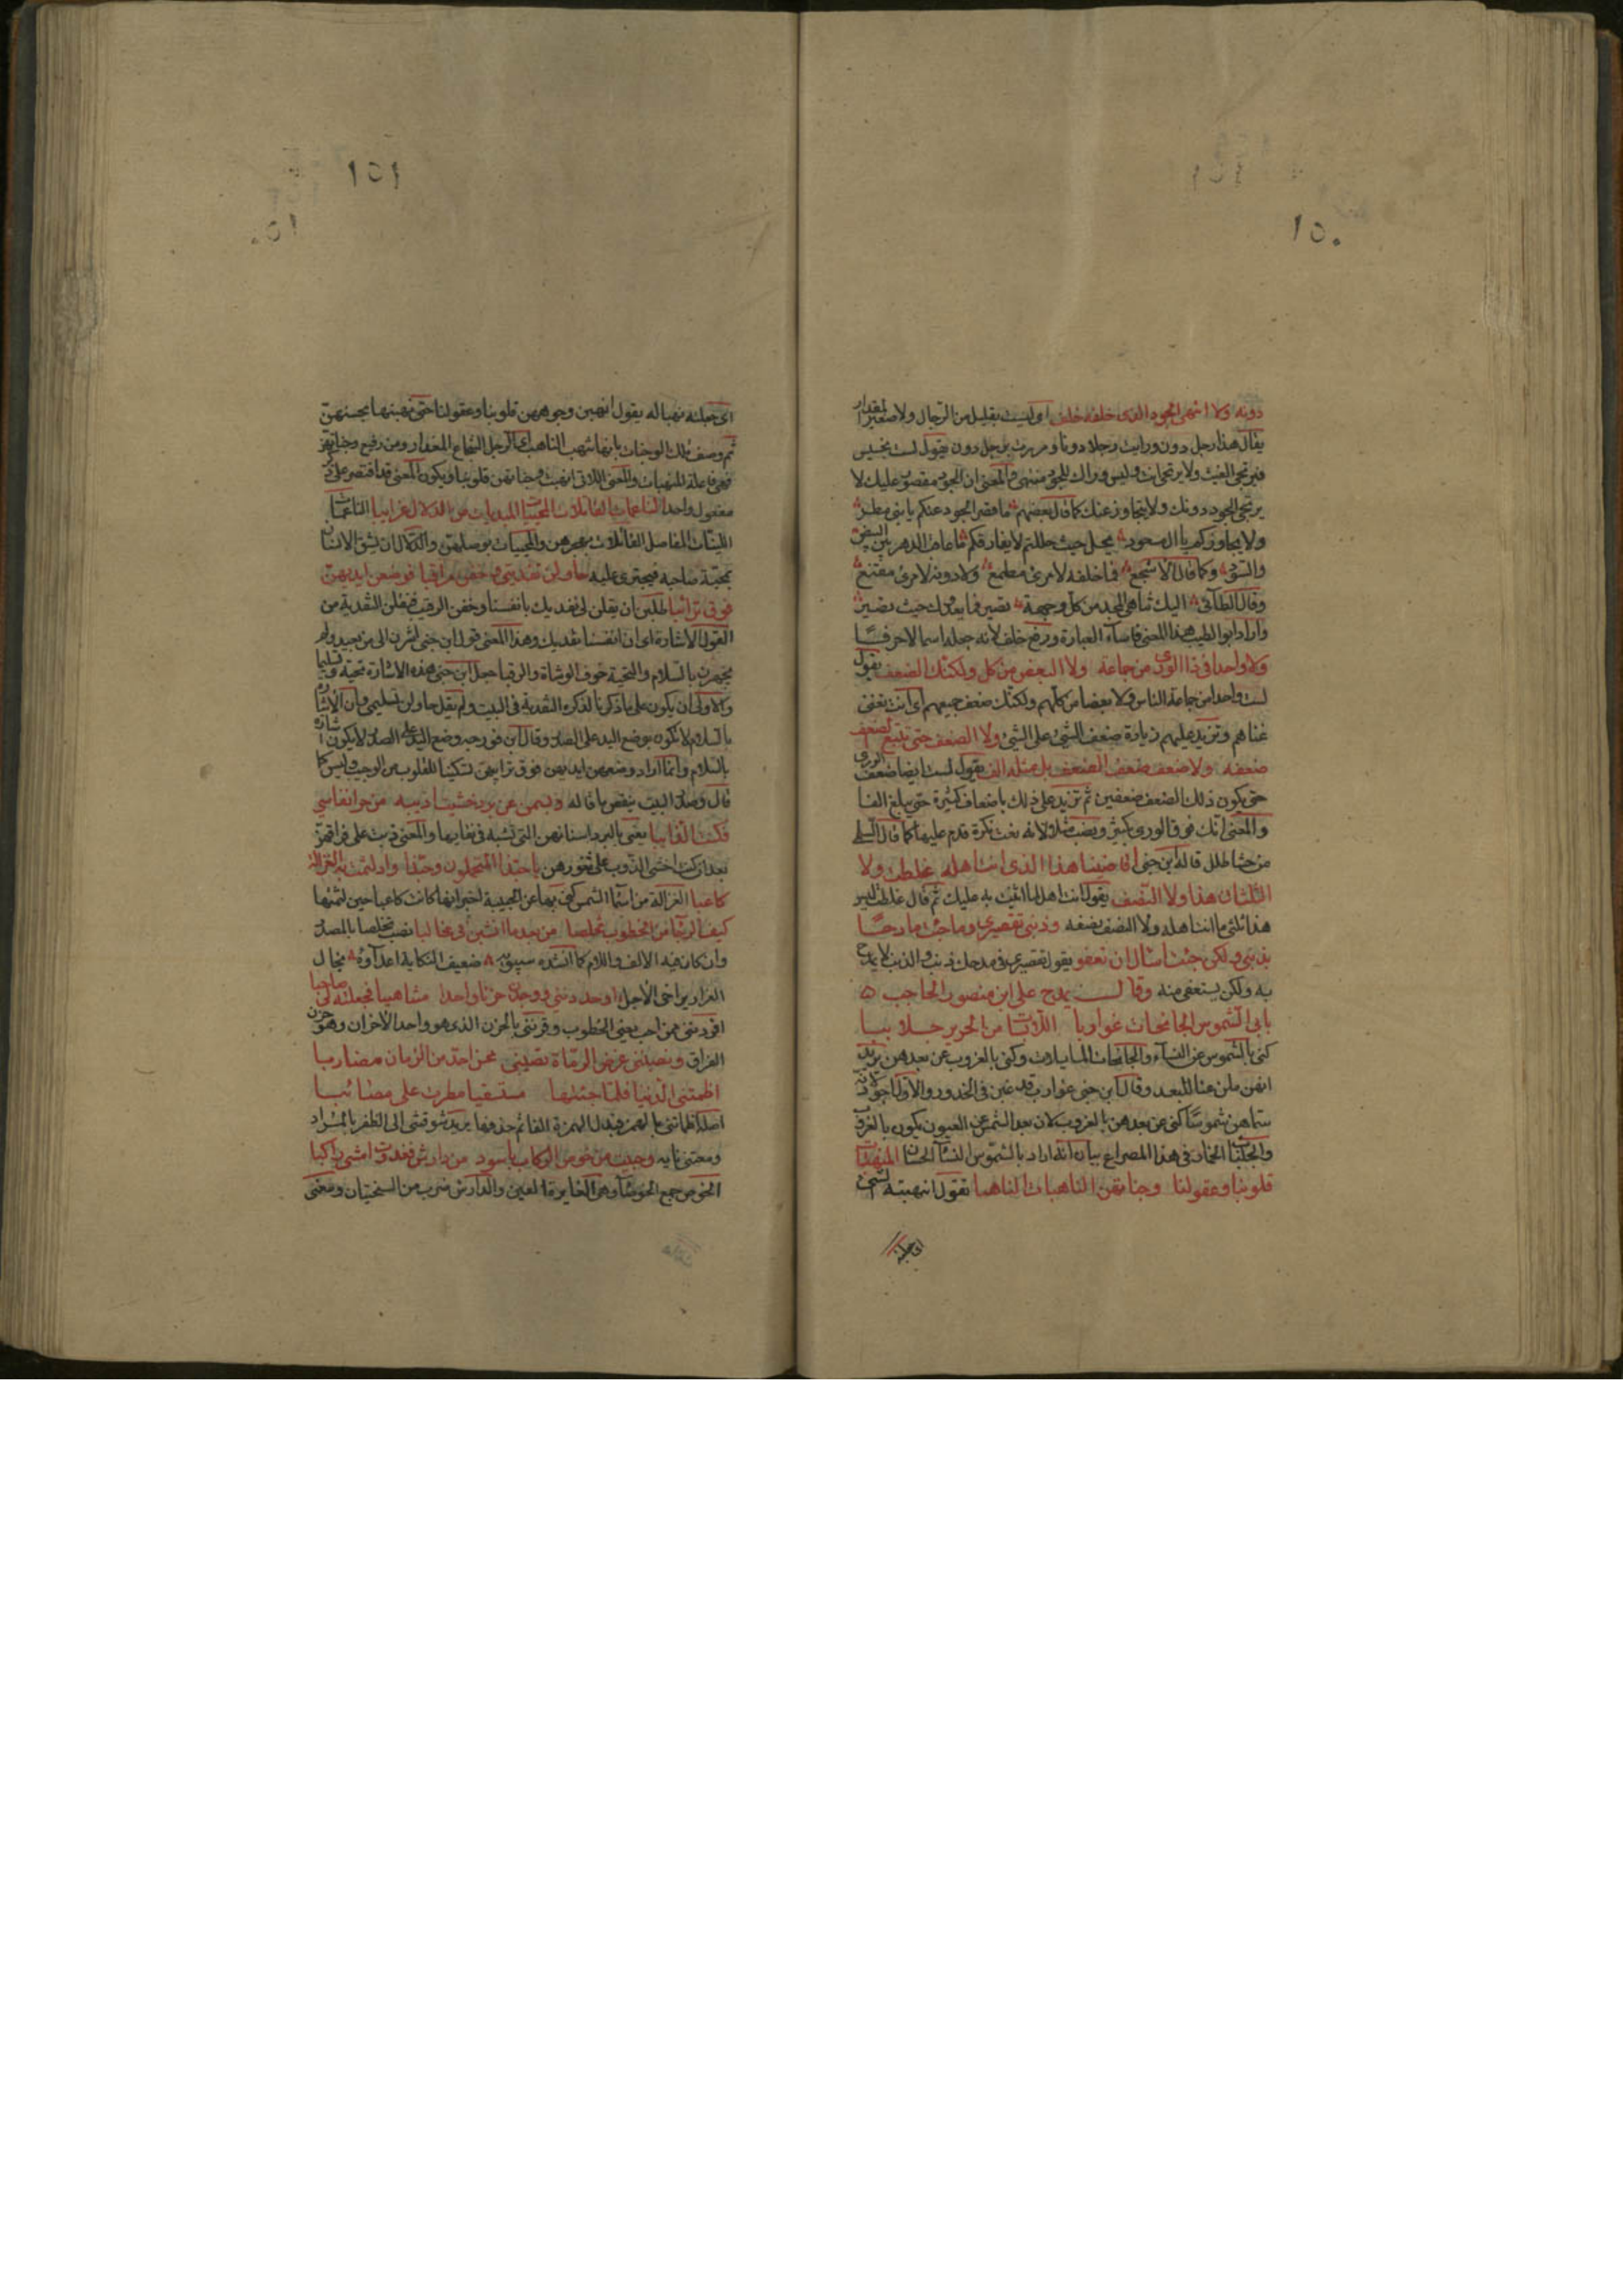 ١٥٠
دونه ولا انتهى الجود الذى خلفه خلف اى لست بقليل من الرجال ولا صغير المقدار
يقال هذا رجل دون ورايت رجلا دونا ومررت برجل دون يقول لست بخسيس
فيرتجى الغيث ولا يرتجى انت وليس وراك للجود منتهى والمعنى ان الجود مقصور عليك لا
يرتجى الجود دونك ولا يتجاوز عنك كما قال بعضهم ما قصر الجود عنكم يا بنى مطر
ولا يجاوزكم يا ال مسعود يحل حيث حللتم لا يفارقكم ما عاقب الدهر بين البيض
والسود وكما قال الاشجع فما خلفه لامرئ مطمع ولا دونه لامرئ مقنع
وقال الطائى اليك تناهى المجد من كل وجهة يصير فما يعدوك حيث تصير
واراد ابو الطيب هذا المعنى فاساء العبارة ورفع خلف لانه جعله اسما لا حرفا
ولا واحدا فى ذا الورى من جماعة ولا البعض من كل ولكنك الضعف يقول
لست واحدا من جماعة الناس ولا بعضا من كلهم ولكنك ضعف جميعهم اى انت تغنى
غناهم وتزيد عليهم زيادة ضعف الشئ على الشئ ولا الضعف حتى يتبع الضعف
ضعفه ولا ضعف ضعف الضعف بل مثله الف يقول لست ايضا ضعف الورى
حتى يكون ذلك الضعف ضعفين ثم تزيد على ذلك باضعاف كثيرة حتى يبلغ الفا
والمعنى انك فوق الورى بكثير ونصب مثله لانه نعت نكرة قدم عليها كما قال
موحشا طلل قاله ابن جنى اقاضينا هذا الذى انت اهله غلطت ولا
الثلثان هذا ولا النصف يقول انت اهل لما اثنيت به عليك ثم قال غلطت ليس
هذا ثلثى ما انت اهله ولا النصف نصفه وذنبى تقصيرى وما جئت مادحا
بذنبى ولكن جئت اسال ان تعفو يقول تقصيرى فى مدحك ذنب والذنب لا يمدح
به ولكن يستعفى منه وقال يمدح على ابن منصور الحاجب
بابى الشموس الجانحات غواربا اللابسات من الحرير جلاببا
كنى بالشموس عن النساء والجانحات المايلات وكنى بالغروب عن بعدهن يريد
انهن ملن عنا للبعد وقال ابن جنى غوارب قد غبن فى الخدور والاول اجود لانه
سماهن شموسا كنى عن بعدهن بالغروب لان بعد الشمس عن العيون يكون بالغروب
والجلباب الخمار فى هذا المصراع بيان انه اراد بالشموس النساء الحسان المنهبات
قلوبنا وعقولنا وجناتهن الناهبات الناهبا تقول انهبته الشئ
اى جعلته
١٥١
اى جعلته نهبا له يقول انهبن وجوههن قلوبنا وعقولنا حتى نهبنها بحسنهن
ثم وصف تلك الوجنات بانها تنهب الناهب اى الرجل الشجاع المغوار ومن رفع وجناتهن
فهى فاعلة للمنهبات والمعنى اللاتى انهبت وجناتهن قلوبنا ويكون المعنى قد اقتصر على ذكر
مفعول واحد الناعمات القاتلات المحييات المبديات من الدلال غرايبا الناعمات
اللينات المفاصل القاتلات بهجرهن والمحييات بوصلهن والدلال ان يثق الانسان
بمحبة صاحبه فيجترى عليه حاولن تفديتى وخفن مراقبا فوضعن ايديهن
فوق ترائبا طلبن ان يقلن لى نفديك بانفسنا وخفن الرقيب فنقلن التفدية من
القول الى الاشارة اى ان انفسنا تفديك وهذا المعنى قول ابن جنى اشرن الى من بعيد ولم
يجهرن بالسلام والتحية خوف الوشاة والرقبا جعل ابن جنى هذه الاشارة تحية وتسليما
والاولى ان يكون على ما ذكرنا لذكره التفدية فى البيت ولم يقل حاولن تسليمى وان الاشارة
بالسلام لا تكون بوضع اليد على الصدر وقال ابن فورجه وضع اليد على الصدر لا يكون اشارة
بالسلام وانما اراد وضعهن ايديهن فوق ترائبهن تسكينا للقلوب من الوجيب وليس كما
قال وصدر البيت ينقض ما قاله وبسمن عن برد خشيت اذيبه من حر انفاسى
فكنت الذايبا يعنى بالبرد اسنانهن التى تشبه فى نقايها والمعنى ذبت على فراقهن
بعد ان كنت اخشى الذوب على ثغورهن يا حبذا المتحملون وحبذا واد لثمت به الغزالة
كاعبا الغزالة من اسما الشمس كنى بها عن الحبيبة اخبر انها كانت كاعبا حين لثمها
كيف الرجا من الخطوب تخلصا من بعد ما انشبن فى مخالبا نصب تخلصا بالمصدر
وان كان فيه الالف واللام كما انشده سيبويه ضعيف النكاية اعداءه يخال
الفرار يراخى الاجل اوحدننى ووجدن حزنا واحدا متناهيا فجعلنه لى صاحبا
افردتنى ممن احب يعنى الخطوب وقرنتنى بالحزن الذى هو واحد الاحزان وهو حزن
الفراق ونصبننى غرض الرماة تصيبنى محن احد من الزمان مضاربا
اظمتنى الدنيا فلما جئتها مستسقيا مطرت على مصائبا
اصله اظماتنى بالهمز فبدل الهمزة الفا ثم حذفها يريد شوقتنى الى الظفر بالمراد
ومنعتنى نايه وحبيت من خوص الركاب باسود من دارش فغدوت امشى راكبا
الخوص جمع الخوصاء وهى الغايرة العين والدارش ضرب من السختيان ومعنى